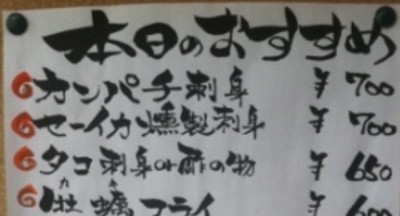 本日のおすすめ
カンパチ刺身 ¥700
セーイカ燻製刺身 ¥700
タコ刺身or酢の物 ¥650
牡蠣フライ ¥600